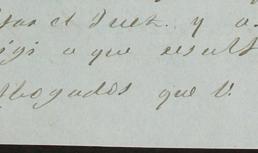 el Juez. y a
a que result
Abogados que V.